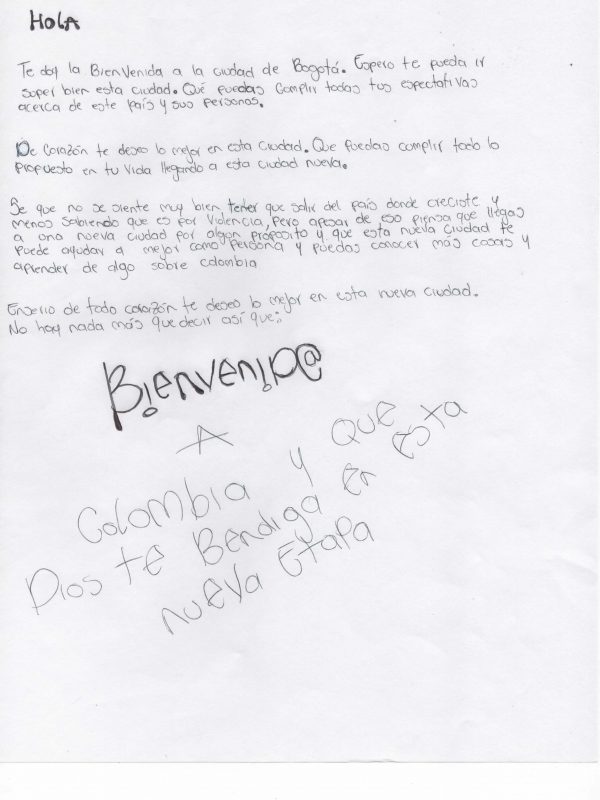 HOLA
Te doy la Bienvenida a la ciudad de Bogotá. Espero te pueda ir
super bien esta ciudad. Qué puedas cumplir todas tus espectativas
acerca de este país y sus personas.
De corazón te deseo lo mejor en esta ciudad. Que puedas cumplir todo lo
propuesto en tu vida llegando a esta ciudad nueva.
Se que no se siente muy bien tener que salir del país donde creciste y
menos sabiendo que es por violencia, pero apesar de eso piensa que llegas
a una nueva ciudad por algun proposito y que esta nueva ciudad te
puede ayudar a mejor como persona y puedas conocer más cosas y
aprender de algo sobre colombia
Enserio de todo corazón te deseo lo mejor en esta nueva ciudad.
No hay nada más que decir así que:
Bienvenid@
A
Colombia y que
Dios te Bendiga en esta
nueva Etapa